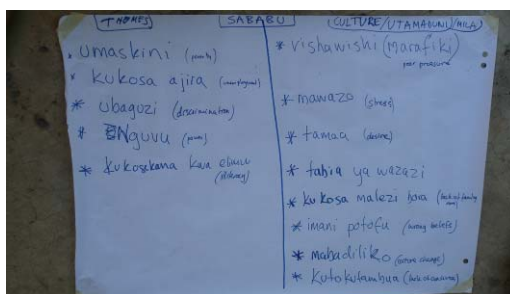 THEMES
SABABU
CULTURE/UTAMADUNI/MILA
. Umaskini (poverty)
* Kukosa ajira (unemployment)
* Ubaguzi (discrimination)
* Nguvu (power)
* Kukosekana kwa elimu
(illiteracy)
* Vishawishi (Marafiki)
peer pressure
* mawazo (stress)
* tamaa (desire)
* tabia ya wazazi
* Kukosa malezi bora
* imani potofu (wrong beliefs)
* mabadiliko
* Kutokutambua